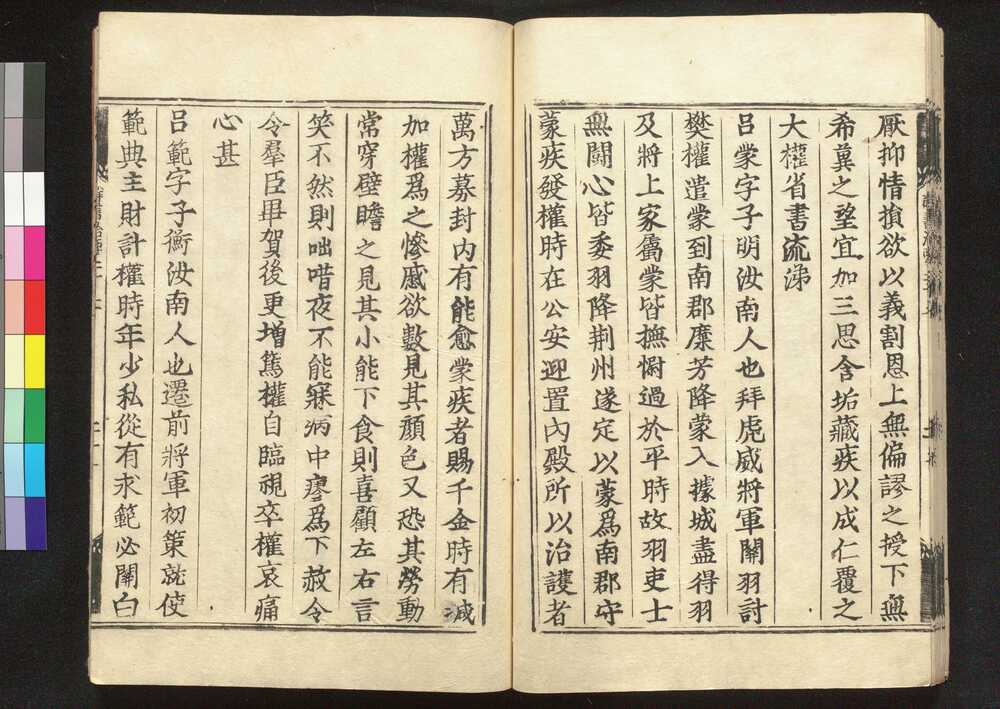 厭抑情損欲以義割恩上無偏謬之授下無
希兾之望宜加三思含垢藏疾以成仁覆之
大權省書流涕
呂蒙字子明汝南人也拜虎威將軍關羽討
樊權遣蒙到南郡糜芳降蒙入據城盡得羽
及將士家屬蒙皆撫慰過於平時故羽吏士
無鬪心皆委羽降荆州遂定以蒙爲南郡守
蒙疾發權時在公安迎置內殿所以治護者
萬方募封內有能愈蒙疾者賜千金時有減
加權爲之慘慼欲數見其顏色又恐其勞動
常穿壁瞻之見其小能下食則喜顧左右言
笑不然則咄唶夜不能寐病中瘳爲下赦令
令羣臣畢賀後更增篤權自臨視卒權哀痛
心甚
呂範字子衡汝南人也遷前將軍初策就使
範典主財計權時年少私從有求範必關白